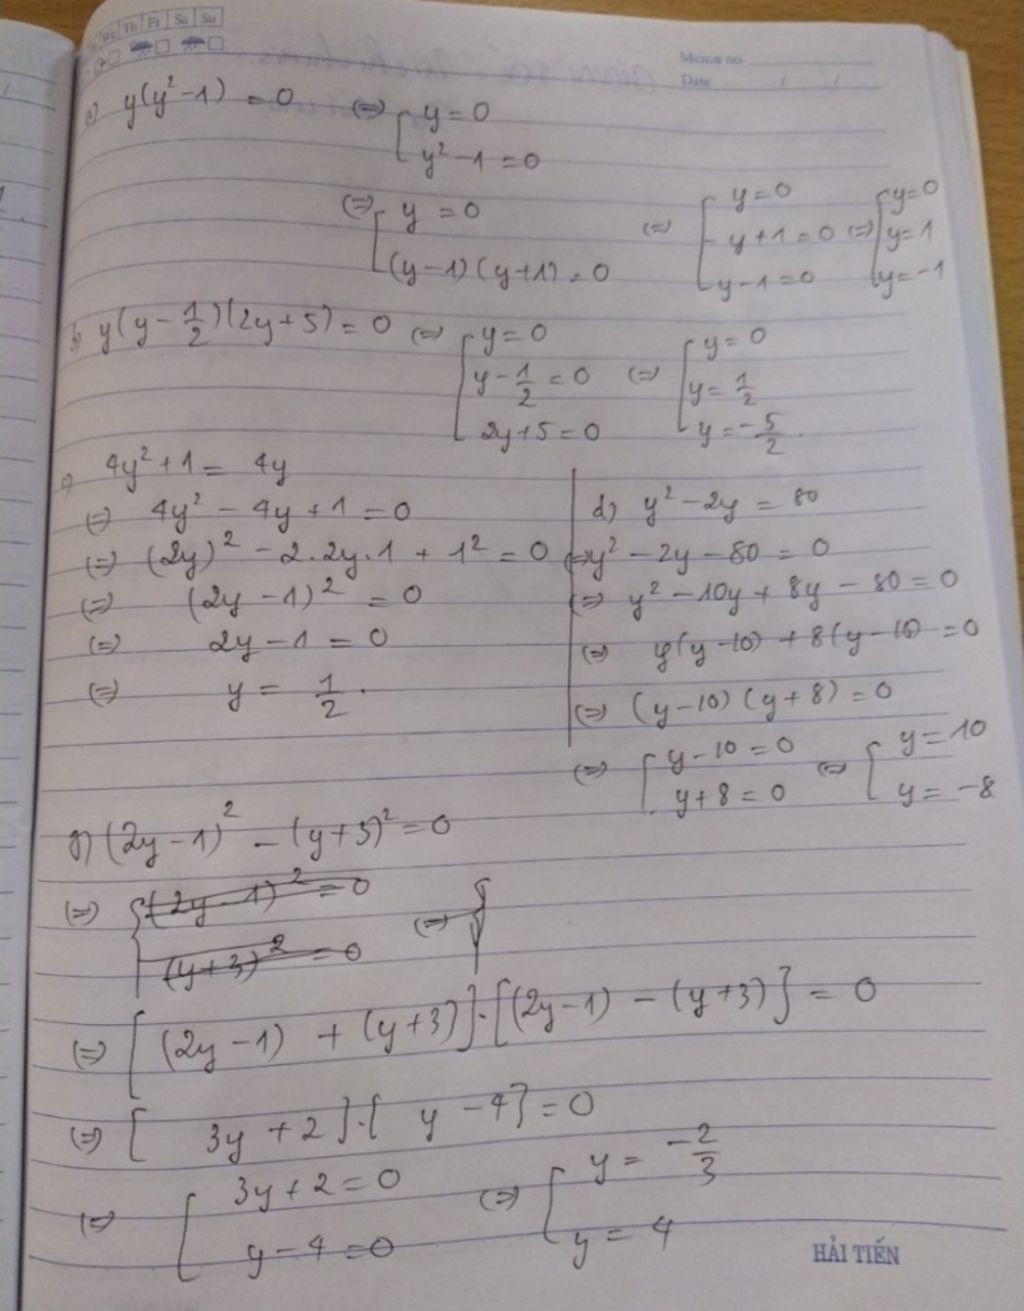 We Th Fr Sa Su
Memo no.
Date / /
a) y(y² - 1) = 0 (=) [ y = 0
y² - 1 = 0
(=) [ y = 0
(y - 1)(y + 1) = 0
(=) [ y = 0
y + 1 = 0
y - 1 = 0
(=) [ y = 0
y = 1
y = -1
b) y(y - 1/2)(2y + 5) = 0 (=) [ y = 0
y - 1/2 = 0
2y + 5 = 0
(=) [ y = 0
y = 1/2
y = -5/2.
4y² + 1 = 4y
(=) 4y² - 4y + 1 = 0
(=) (2y)² - 2.2y.1 + 1² = 0
(=) (2y - 1)² = 0
(=) 2y - 1 = 0
(=) y = 1/2.
d) y² - 2y = 80
(=) y² - 2y - 80 = 0
(=) y² - 10y + 8y - 80 = 0
(=) y(y - 10) + 8(y - 10) = 0
(=) (y - 10)(y + 8) = 0
(=) [ y - 10 = 0
y + 8 = 0
(=) [ y = 10
y = -8
(2y - 1)² - (y + 3)² = 0
(=) [ (2y - 1)² = 0
(y + 3)² = 0
(=)
(=) [(2y - 1) + (y + 3)].[(2y - 1) - (y + 3)] = 0
(=) [ 3y + 2 ].[ y - 4] = 0
(=) [ 3y + 2 = 0
y - 4 = 0
(=) [ y = -2/3
y = 4
HẢI TIẾN